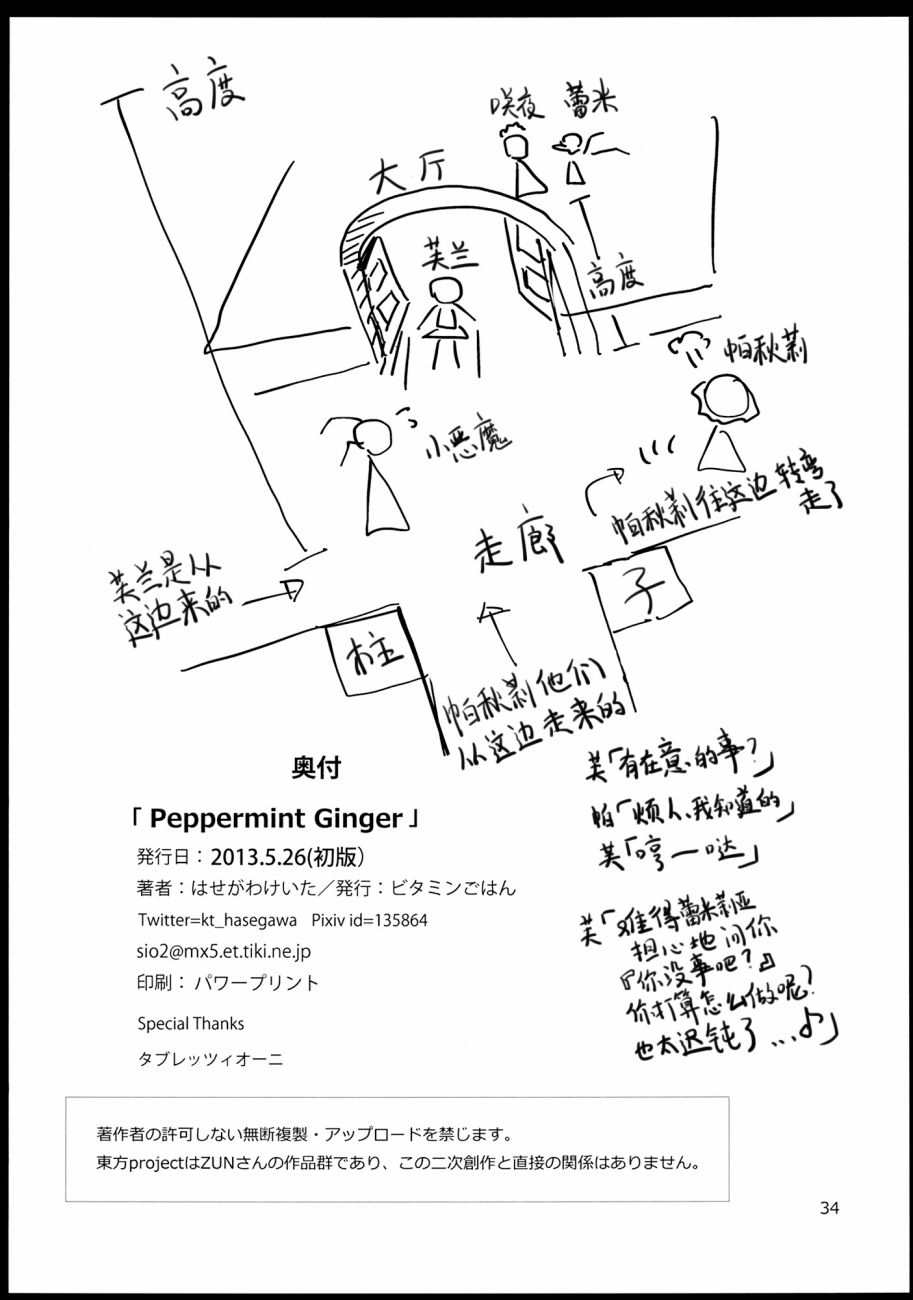 高度
咲夜 蕾米
大厅
芙兰
高度
帕秋莉
小恶魔
帕秋莉往这边转弯
走了
走廊
芙兰是从
这边来的
柱
子
帕秋莉他们
从这边走来的
芙「有在意的事?」
帕「烦人、我知道的」
芙「哼一哒」
芙「难得蕾米莉亚
担心地问你
『你没事吧?』
你打算怎么做呢?
也太迟钝了...♪」
奥付
「 Peppermint Ginger 」
発行日： 2013.5.26(初版）
著者：はせがわけいた／発行：ビタミンごはん
Twitter=kt_hasegawa Pixiv id=135864
sio2@mx5.et.tiki.ne.jp
印刷： パワープリント
Special Thanks
タブレッツィオーニ
著作者の許可しない無断複製・アップロードを禁じます。
東方projectはZUNさんの作品群であり、この二次創作と直接の関係はありません。
34